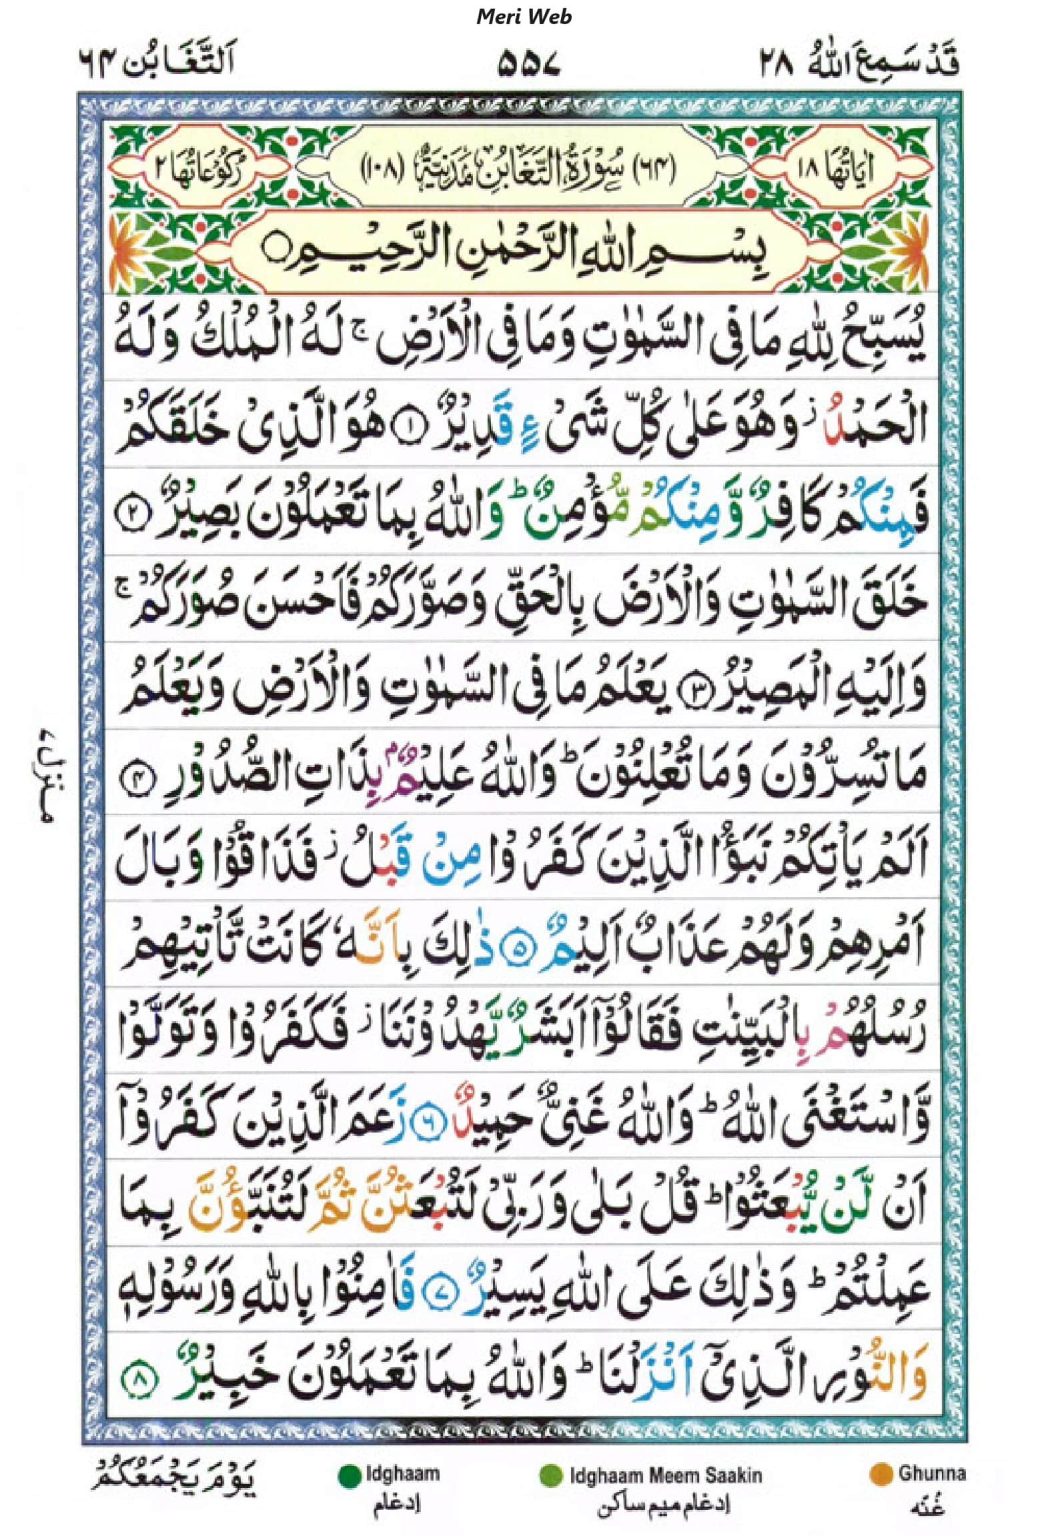 Meri Web
قَدْ سَمِعَ اللّٰهُ ٢٨
٥٥٧
اَلتَّغَابُن ٦٤
اٰيَاتُهَا ١٨
(٦٤) سُوْرَةُ التَّغَابُنِ مَدَنِيَّةٌ (١٠٨)
رُكُوْعَاتُهَا ٢
بِسْمِ اللّٰهِ الرَّحْمٰنِ الرَّحِيْمِ ○
يُسَبِّحُ لِلّٰهِ مَا فِى السَّمٰوٰتِ وَمَا فِى الْاَرْضِ ۚ لَهُ الْمُلْكُ وَلَهُ
الْحَمْدُ ز وَهُوَ عَلٰى كُلِّ شَىْءٍ قَدِيْرٌ ① هُوَ الَّذِىْ خَلَقَكُمْ
فَمِنْكُمْ كَافِرٌ وَّمِنْكُمْ مُّؤْمِنٌ ؕ وَاللّٰهُ بِمَا تَعْمَلُوْنَ بَصِيْرٌ ②
خَلَقَ السَّمٰوٰتِ وَالْاَرْضَ بِالْحَقِّ وَصَوَّرَكُمْ فَاَحْسَنَ صُوَرَكُمْ ۚ
وَاِلَيْهِ الْمَصِيْرُ ③ يَعْلَمُ مَا فِى السَّمٰوٰتِ وَالْاَرْضِ وَيَعْلَمُ
مَا تُسِرُّوْنَ وَمَا تُعْلِنُوْنَ ؕ وَاللّٰهُ عَلِيْمٌۢ بِذَاتِ الصُّدُوْرِ ④
اَلَمْ يَاْتِكُمْ نَبَؤُا الَّذِيْنَ كَفَرُوْا مِنْ قَبْلُ ز فَذَاقُوْا وَبَالَ
اَمْرِهِمْ وَلَهُمْ عَذَابٌ اَلِيْمٌ ⑤ ذٰلِكَ بِاَنَّهٗ كَانَتْ تَّاْتِيْهِمْ
رُسُلُهُمْ بِالْبَيِّنٰتِ فَقَالُوْۤا اَبَشَرٌ يَّهْدُوْنَنَا ز فَكَفَرُوْا وَتَوَلَّوْا
وَّاسْتَغْنَى اللّٰهُ ؕ وَاللّٰهُ غَنِىٌّ حَمِيْدٌ ⑥ زَعَمَ الَّذِيْنَ كَفَرُوْۤا
اَنْ لَّنْ يُّبْعَثُوْا ؕ قُلْ بَلٰى وَرَبِّىْ لَتُبْعَثُنَّ ثُمَّ لَتُنَبَّؤُنَّ بِمَا
عَمِلْتُمْ ؕ وَذٰلِكَ عَلَى اللّٰهِ يَسِيْرٌ ⑦ فَاٰمِنُوْا بِاللّٰهِ وَرَسُوْلِهٖ
وَالنُّوْرِ الَّذِىْۤ اَنْزَلْنَا ؕ وَاللّٰهُ بِمَا تَعْمَلُوْنَ خَبِيْرٌ ⑧
منزل ٧
يَوْمَ يَجْمَعُكُمْ
Idghaam
إدغام
Idghaam Meem Saakin
إدغام ميم ساكن
Ghunna
غُنّه